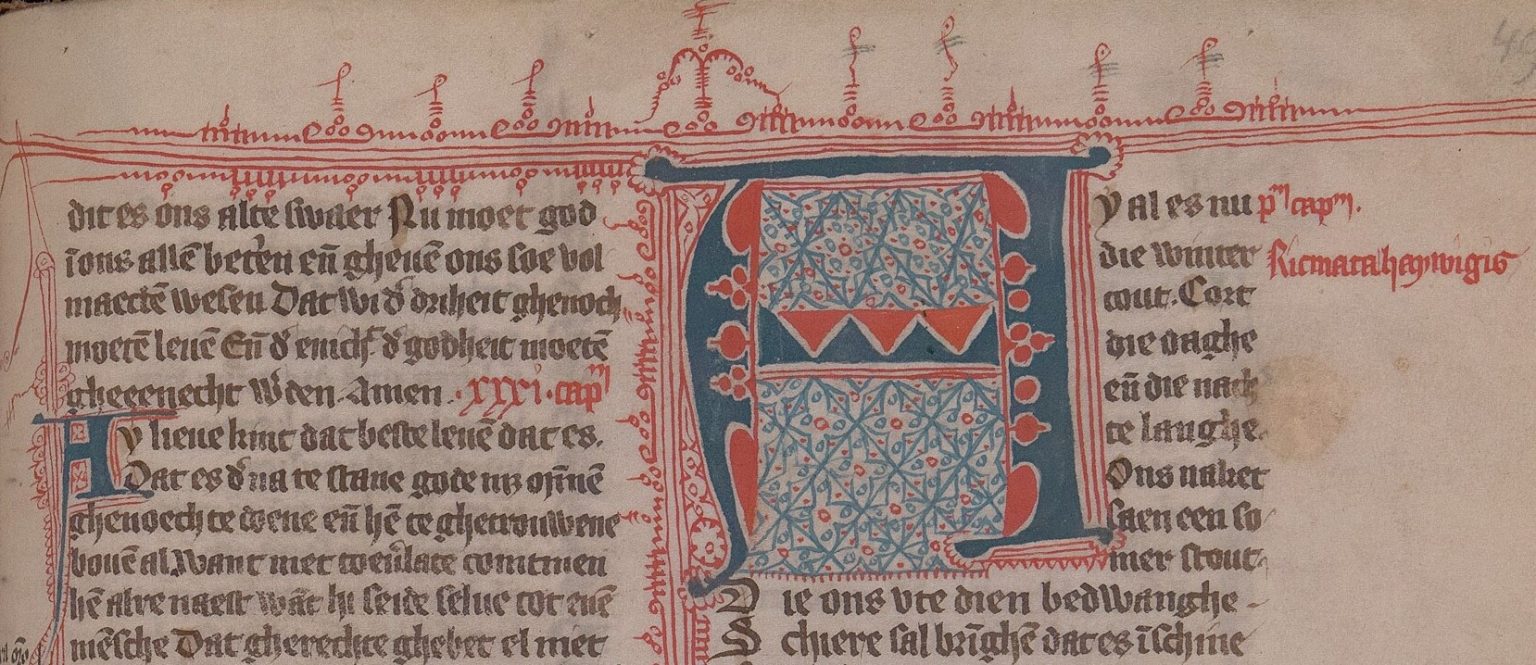 dit es ons alte swaer Nu moet god
īons allē betʼen eñ gheuē ons soe vol
maectē wesen Dat wi đ driheit ghenoch
moetē leuē Eñ đ enich đ godheit moetē
gheeenecht wʼden. Amen. ·xxxi·capᵐ
Ay lieue kint dat beste leuē dat es.
Dat es đna te staue gode
ghenoech te doene eñ hē te ghetrouwene
bouē al Want met
hē alre naest wāt hi seide selue tot euē
mēsche Dat gherechte ghebet el met
Ay al es nu pᵐ capᵐ.
die winter Ricmatahaywigis
cout. Cort
die daghe
eñ die nach
te langhe.
Ons naket
saen een so
mer stout.
Die ons vte dien bedwanghe
Schiere sal brīghē dat es īschine
49